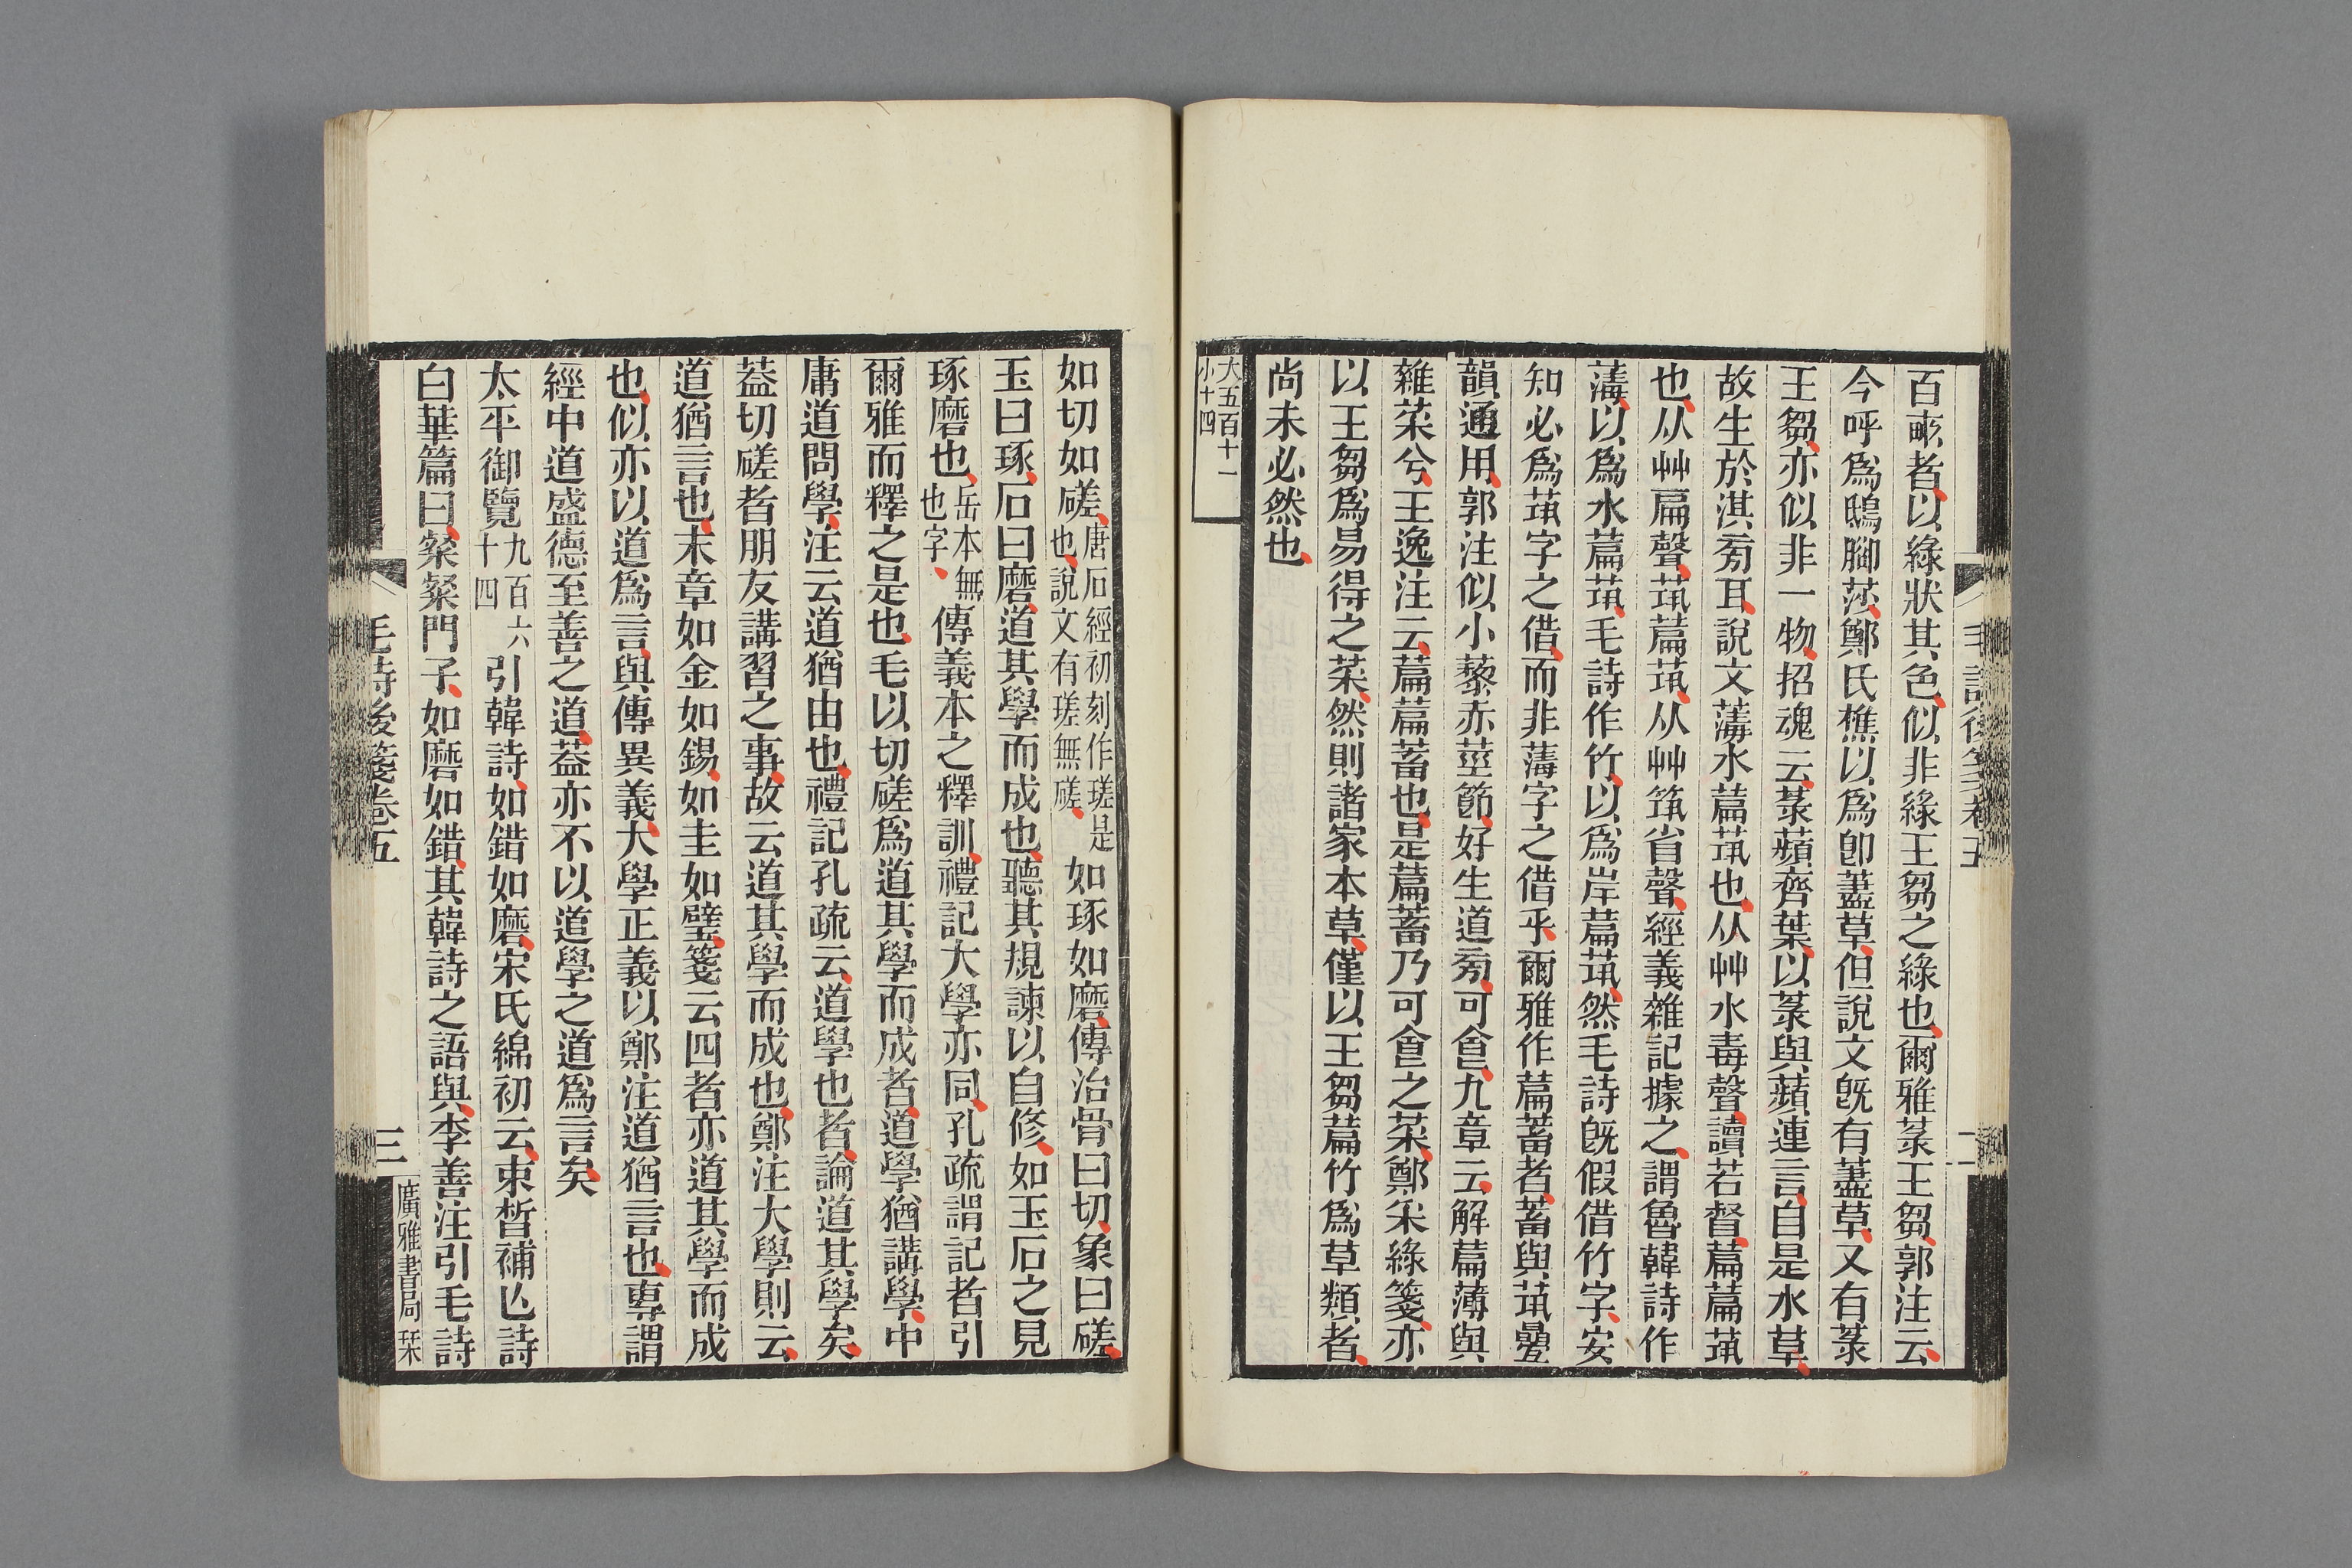 百畝者以綠狀其色似非綠王芻之綠也爾雅菉王芻郭注云
今呼爲鴟腳莎鄭氏樵以爲卽藎草但說文旣有藎草又有菉
王芻亦似非一物招魂云菉蘋齊葉以菉與蘋連言自是水草
故生於淇旁耳說文薄水萹茿也从艸水毒聲讀若督萹萹茿
也从艸扁聲茿萹茿从艸筑省聲經義雜記據之謂魯韓詩作
薄以爲水萹茿毛詩作竹以爲岸萹茿然毛詩旣假借竹字安
知必爲茿字之借而非薄字之借乎爾雅作萹蓄者蓄與茿曡
韻通用郭注似小藜赤莖節好生道旁可食九章云解萹薄與
雜菜兮王逸注云萹萹蓄也是萹蓄乃可食之菜鄭釆綠箋亦
以王芻爲易得之菜然則諸家本草僅以王芻萹竹爲草類者
尚未必然也
大五百十一
小十四
如切如磋唐石經初刻作瑳是也說文有瑳無磋如琢如磨傳治骨曰切象曰磋
玉曰琢石曰磨道其學而成也聽其規諫以自修如玉石之見
琢磨也岳本無也字傳義本之釋訓禮記大學亦同孔疏謂記者引
爾雅而釋之是也毛以切磋爲道其學而成者道學猶講學中
庸道問學注云道猶由也禮記孔疏云道學也者論道其學矣
葢切磋者朋友講習之事故云道其學而成也鄭注大學則云
道猶言也末章如金如錫如圭如璧箋云四者亦道其學而成
也似亦以道爲言與傳異義大學正義以鄭注道猶言也專謂
經中道盛德至善之道葢亦不以道學之道爲言矣
太平御覽九百六十四引韓詩如錯如磨宋氏綿初云束晳補亾詩
白華篇曰粲粲門子如磨如錯其韓詩之語與李善注引毛詩
毛詩後箋卷五
三
廣雅書局栞